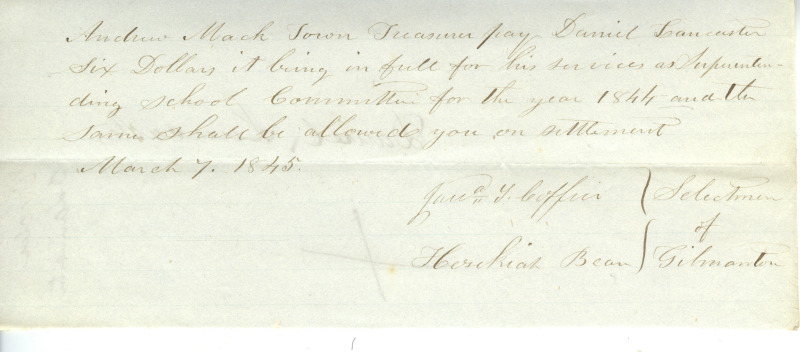 Andrew Mack Town Treasurer pay Daniel Lancaster
Six Dollars it being in full for his services as Superinten-
ding school Committee for the year 1844 and the
same shall be allowed you on settlement
March 7. 1845.
Y. Coffin } Selectmen
of
Hezekiah Bean } Gilmanton